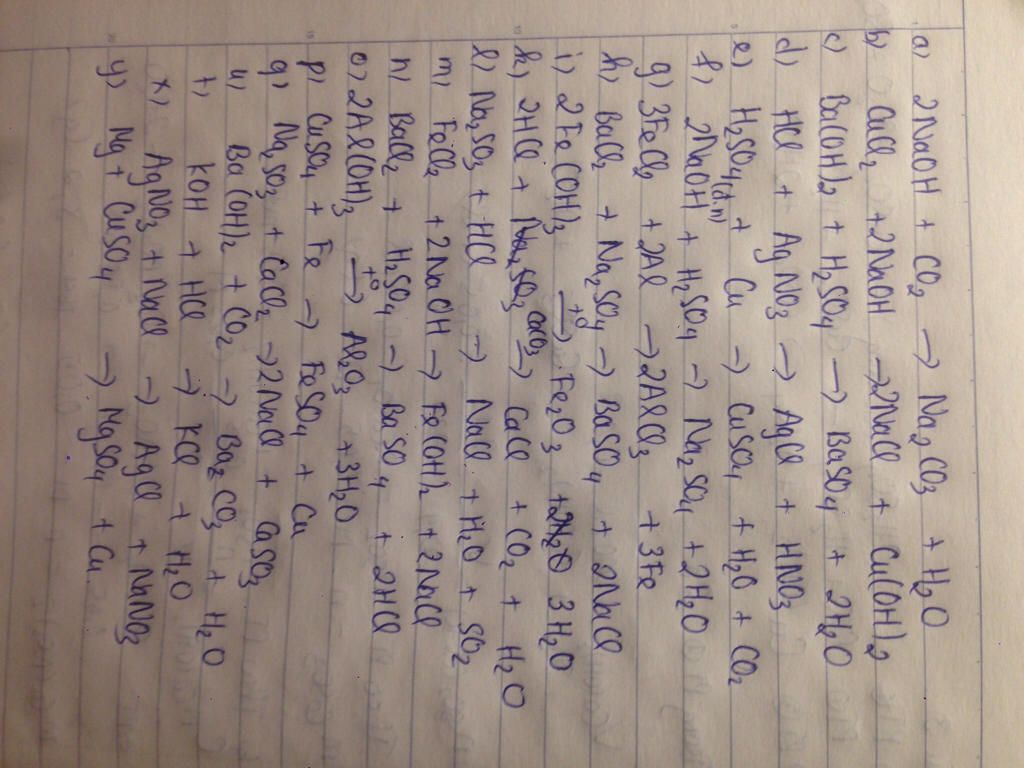 a) 2NaOH + CO₂ → Na₂CO₃ + H₂O
b) CuCl₂ + 2NaOH → 2NaCl + Cu(OH)₂
c) Ba(OH)₂ + H₂SO₄ → BaSO₄ + 2H₂O
d) HCl + AgNO₃ → AgCl + HNO₃
e) H₂SO₄(đ,n) + Cu → CuSO₄ + H₂O + CO₂
f) 2NaOH + H₂SO₄ → Na₂SO₄ + 2H₂O
g) 3FeCl₂ + 2Al → 2AlCl₃ + 3Fe
h) BaCl₂ + Na₂SO₄ → BaSO₄ + 2NaCl
i) 2Fe(OH)₃ →(t°) Fe₂O₃ + 3H₂O
k) 2HCl + CaCO₃ → CaCl + CO₂ + H₂O
l) Na₂SO₃ + HCl → NaCl + H₂O + SO₂
m) FeCl₂ + 2NaOH → Fe(OH)₂ + 2NaCl
n) BaCl₂ + H₂SO₄ → BaSO₄ + 2HCl
o) 2Al(OH)₃ →(t°) Al₂O₃ + 3H₂O
p) CuSO₄ + Fe → FeSO₄ + Cu
q) Na₂SO₃ + CaCl₂ → 2NaCl + CaSO₃
u) Ba(OH)₂ + CO₂ → Ba₂CO₃ + H₂O
t) KOH + HCl → KCl + H₂O
x) AgNO₃ + NaCl → AgCl + NaNO₃
y) Mg + CuSO₄ → MgSO₄ + Cu